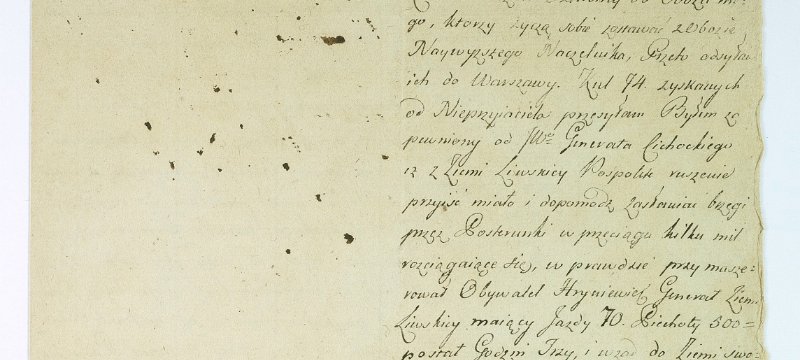 go, którzy życzą sobie zostawać w obozie
Naywyższego Naczelnika, Przeto odsyłam
ich do Warszawy. Kul 74. zyskanych
od Nieprzyiaciela przesyłam Byłem za
pewniony od JWo Generała Cichockiego
iż z Ziemi Liwskiey Pospolite ruszenie
przyiść miało i dopomodz zasłaniać brzegi
przez Posterunki w przeciągu kilku mil
rozciągaiące się, w prawdzie przymasze=
rował Obywatel Hryniewicz Generał Ziemi
Liwskiey maiący Jazdy 70. Piechoty 500=
postał Godzin Trzy, i wrócił do Ziemi swo=